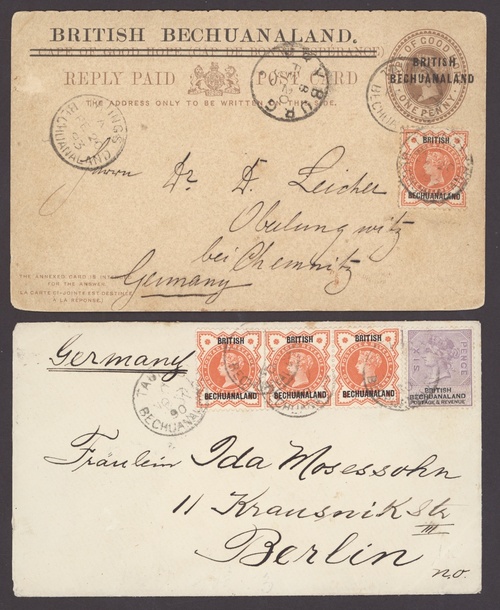 BRITISH BECHUANALAND.
CAPE OF GOOD HOPE (CAP DE BONNE ESPÉRANCE)
REPLY PAID POST CARD
THE ADDRESS ONLY TO BE WRITTEN ON THIS SIDE.
OF GOOD
BRITISH
BECHUANALAND
ONE PENNY
BURG
BECHUANALAND
BRITISH
BECHUANALAND
Herrn Dr. D. Leicher
Oberlungwitz
bei Chemnitz
Germany
THE ANNEXED CARD IS INTENDED
FOR THE ANSWER.
(LA CARTE CI-JOINTE EST DESTINÉE
À LA RÉPONSE)
Germany
BRITISH
BECHUANALAND
BRITISH
BECHUANALAND
BRITISH
BECHUANALAND
SIX PENCE
BRITISH
BECHUANALAND
POSTAGE & REVENUE
90
BECHUANA
Fräulein Ida Mosessohn
11 Krausnik Str
III
Berlin
n.o.